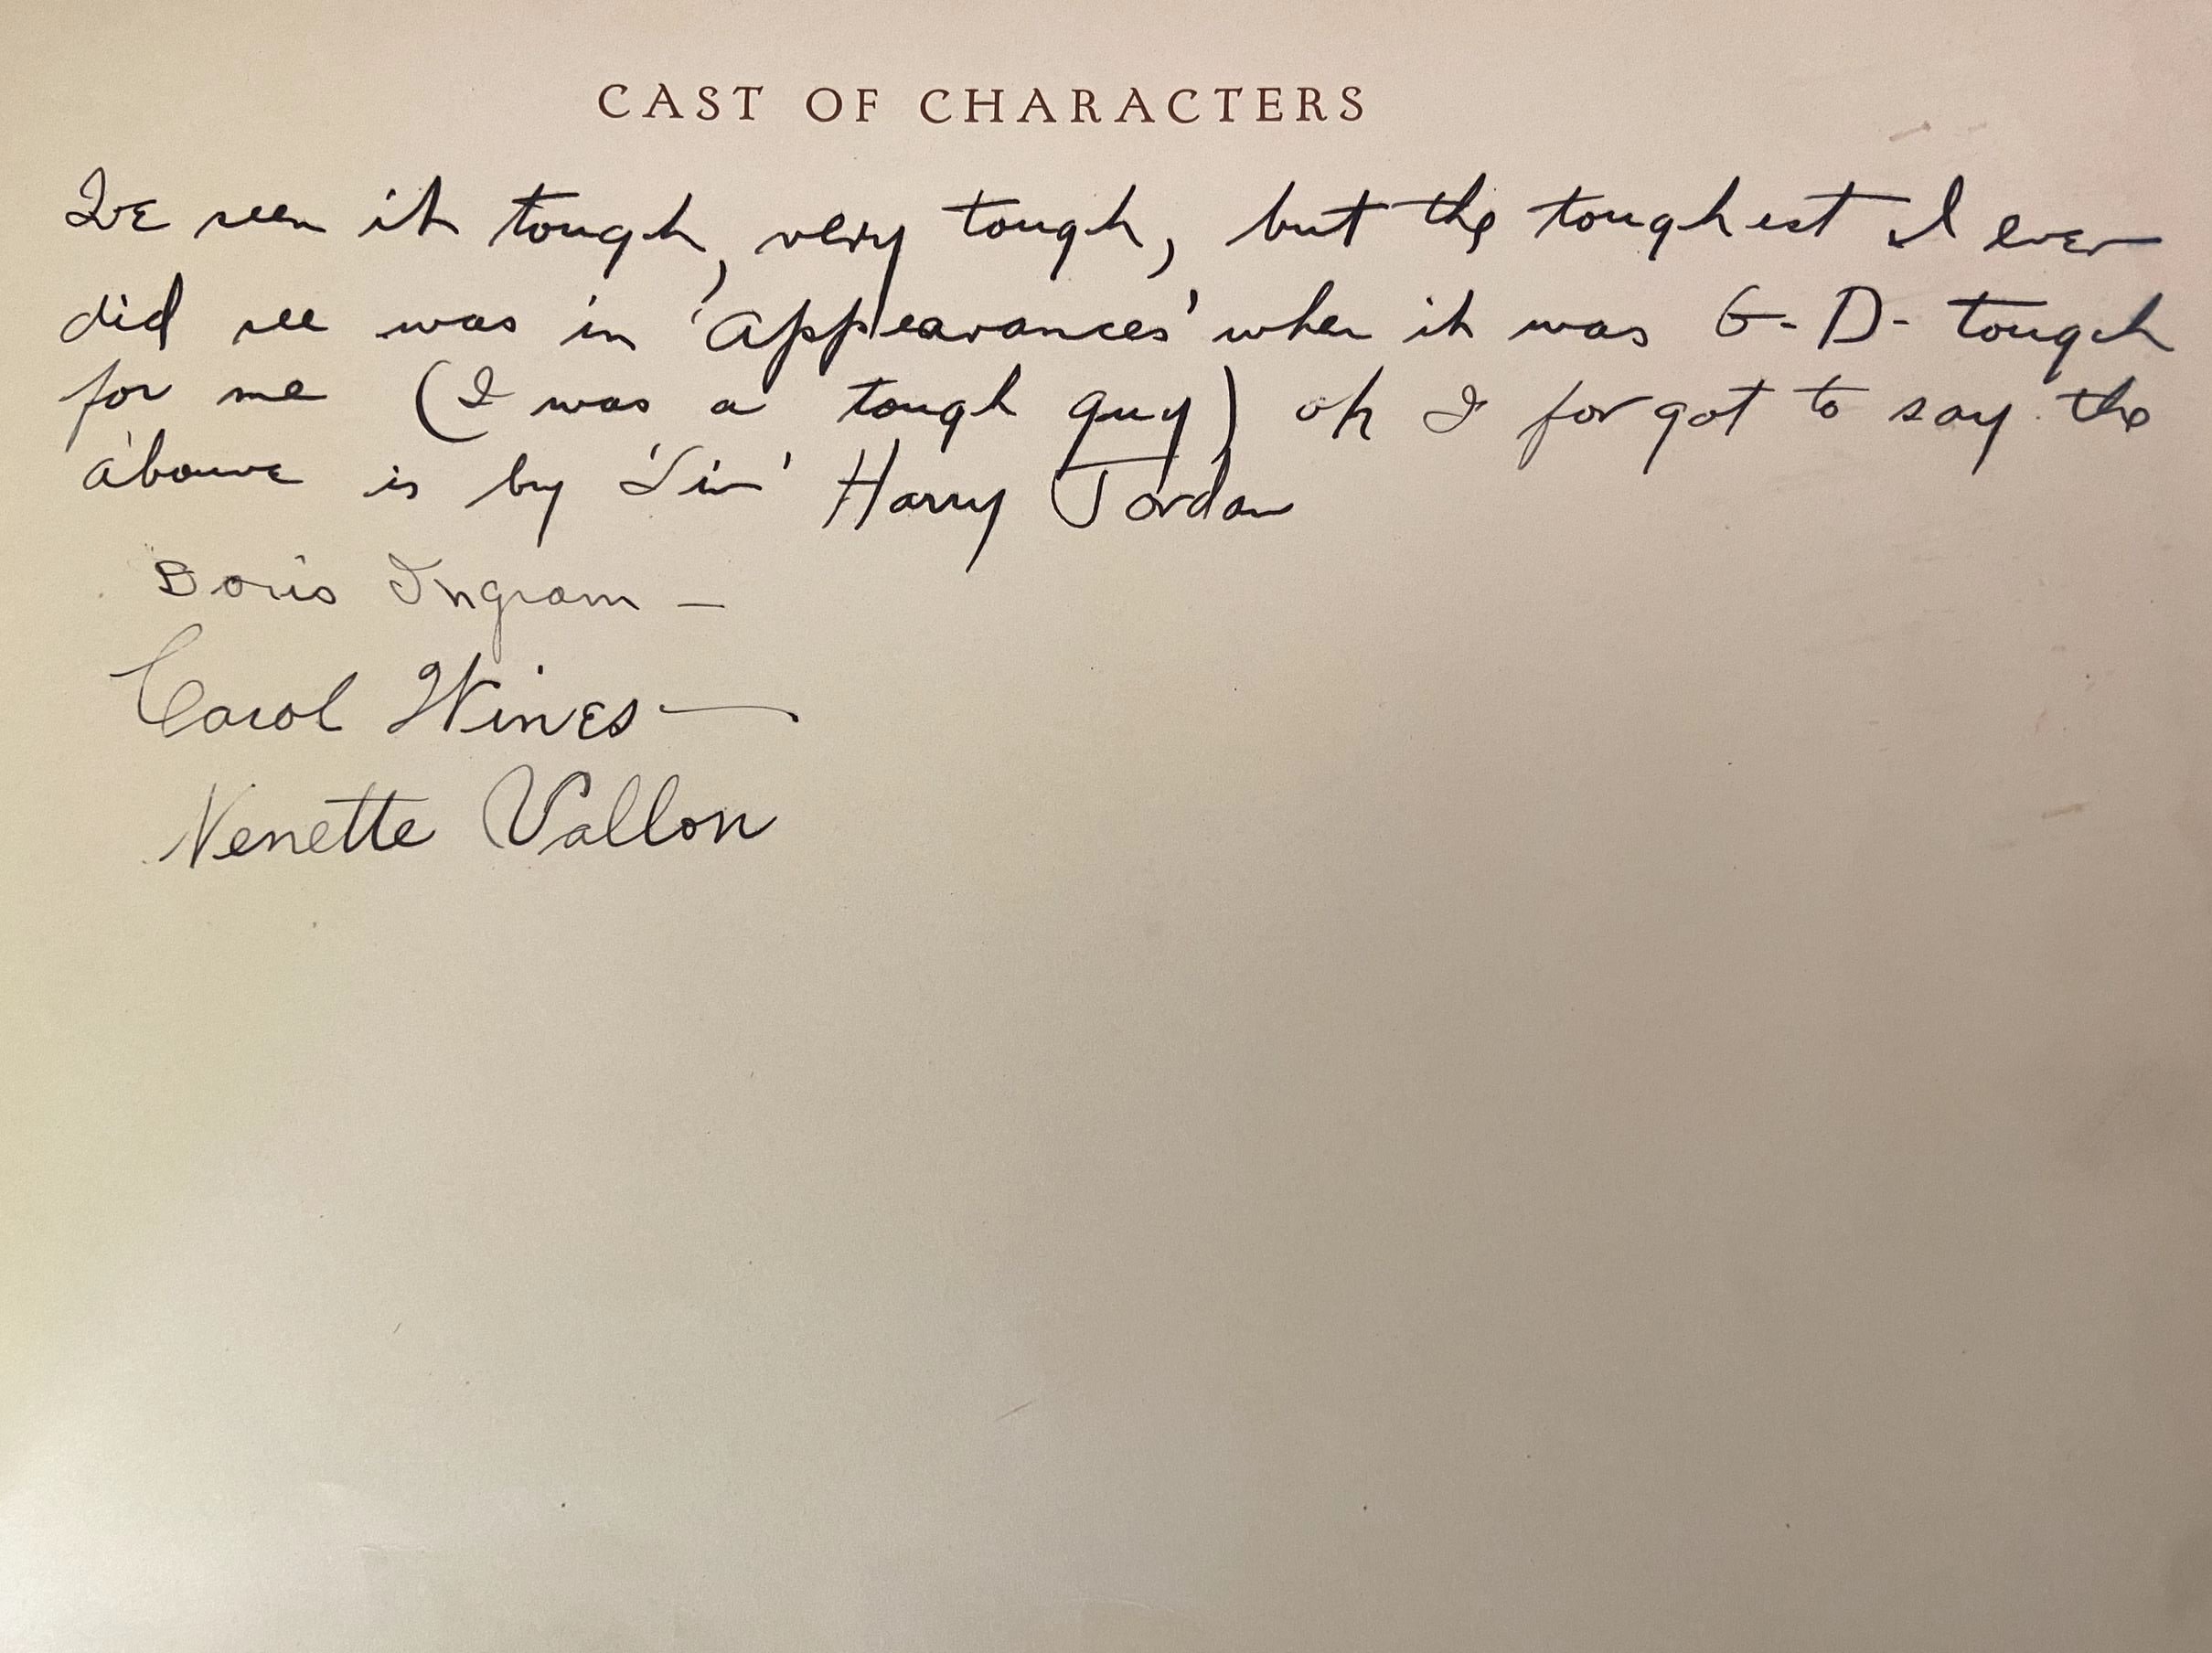 CAST OF CHARACTERS
Ive seen it tough, very tough, but the toughest I ever
did see was in 'Appearances' when it was G-D- tough
for me (I was a tough guy) oh I forgot to say the
above is by Harry Jordan
Doris Ingram —
Carol Wines —
Nenette Vallon